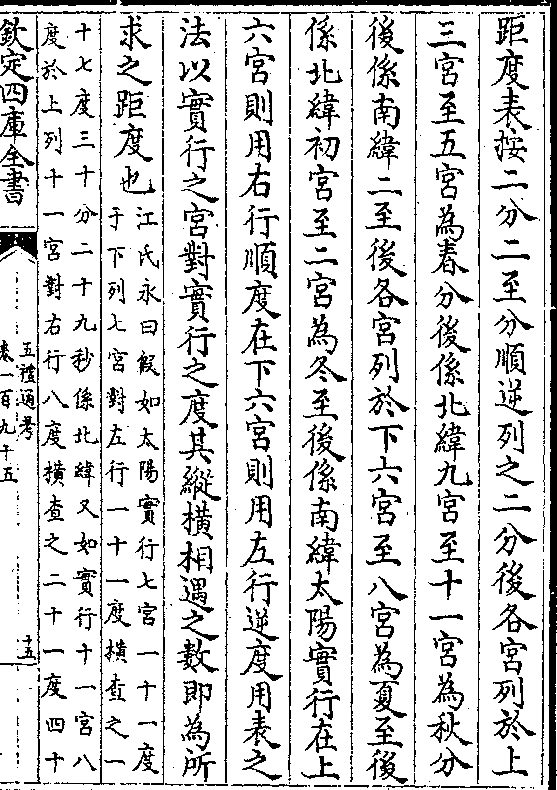 距度表按二分二至分順逆列之二分後各宮列於上
三宮至五宮為春分後係北緯九宮至十一宮為秋分
後係南緯二至後各宮列於下六宮至八宮為夏至後
係北緯初宮至二宮為冬至後係南緯太陽實行在上
六宮則用右行順度在下六宮則用左行逆度用表之
法以實行之宮對實行之度其縱橫相遇之數即為所
求之距度也
江氏永曰假如太陽實行七宮一十一度
于下列七宮對左行一十一度橫查之一
十七度三十分二十九秒係北緯又如實行十一宮八
度於上列十一宮對右行八度橫查之二十一度四十
欽定四庫全書
五禮通考
卷一百九十五
十五